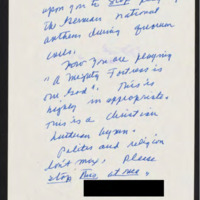 upon you to stop playing
the German national
anthem during gressner
calls.
Now you are playing
"a mighty Fortress is
our God". This is
highly in appropriate.
This is a christian
Lutheran hymn.
Politics and religion
don't mix, Please
stop this at once.